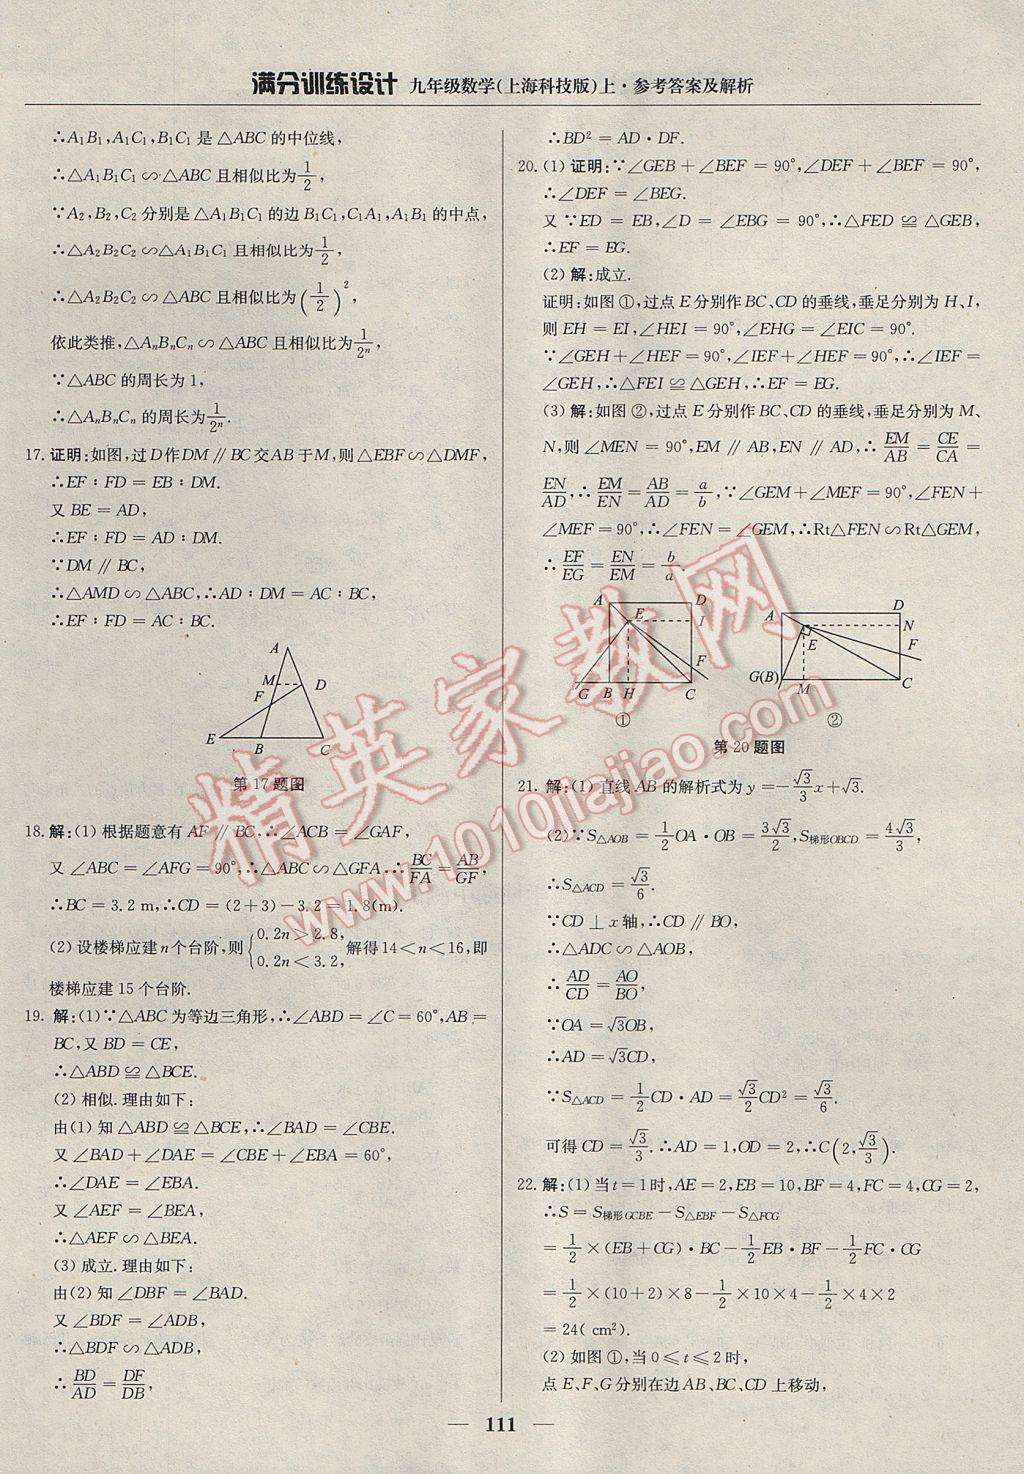 满分训练设计 九年级数学(上海科技版)上·参考答案及解析
∴A₁B₁,A₁C₁,B₁C₁是△ABC的中位线,
∴△A₁B₁C₁∽△ABC且相似比为1/2,
∵A₂,B₂,C₂分别是△A₁B₁C₁的边B₁C₁,C₁A₁,A₁B₁的中点,
∴△A₂B₂C₂∽△A₁B₁C₁且相似比为1/2,
∴△A₂B₂C₂∽△ABC且相似比为(1/2)²,
依此类推,△AₙBₙCₙ∽△ABC且相似比为1/2ⁿ,
∵△ABC的周长为1,
∴△AₙBₙCₙ的周长为1/2ⁿ.
17. 证明:如图,过D作DM∥BC交AB于M,则△EBF∽△DMF,
∴EF∶FD=EB∶DM.
又BE=AD,
∴EF∶FD=AD∶DM.
∵DM∥BC,
∴△AMD∽△ABC,∴AD∶DM=AC∶BC,
∴EF∶FD=AC∶BC.
A
M D
F
E B C
第17题图
18. 解:(1)根据题意有AF∥BC,∴∠ACB=∠GAF,
又∠ABC=∠AFG=90°,∴△ABC∽△GFA,∴BC/FA=AB/GF,
∴BC=3.2 m,∴CD=(2+3)-3.2=1.8(m).
(2)设楼梯应建n个台阶,则{0.2n>2.8, 0.2n<3.2, 解得14<n<16,即
楼梯应建15个台阶.
19. 解:(1)∵△ABC为等边三角形,∴∠ABD=∠C=60°,AB=
BC,又BD=CE,
∴△ABD≌△BCE.
(2)相似.理由如下:
由(1)知△ABD≌△BCE,∴∠BAD=∠CBE.
又∠BAD+∠DAE=∠CBE+∠EBA=60°,
∴∠DAE=∠EBA.
又∠AEF=∠BEA,
∴△AEF∽△BEA.
(3)成立.理由如下:
由(2)知∠DBF=∠BAD.
又∠BDF=∠ADB,
∴△BDF∽△ADB,
∴BD/AD=DF/DB,
∴BD²=AD·DF.
20. (1)证明:∵∠GEB+∠BEF=90°,∠DEF+∠BEF=90°,
∴∠DEF=∠BEG.
又∵ED=EB,∠D=∠EBG=90°,∴△FED≌△GEB,
∴EF=EG.
(2)解:成立.
证明:如图①,过点E分别作BC、CD的垂线,垂足分别为H、I,
则EH=EI,∠HEI=90°,∠EHG=∠EIC=90°.
∵∠GEH+∠HEF=90°,∠IEF+∠HEF=90°,∴∠IEF=
∠GEH,∴△FEI≌△GEH,∴EF=EG.
(3)解:如图②,过点E分别作BC、CD的垂线,垂足分别为M、
N,则∠MEN=90°,EM∥AB,EN∥AD,∴EM/AB=CE/CA=
EN/AD,∴EM/EN=AB/AD=a/b,∵∠GEM+∠MEF=90°,∠FEN+
∠MEF=90°,∴∠FEN=∠GEM,∴Rt△FEN∽Rt△GEM,
∴EF/EG=EN/EM=b/a.
A D
E I
F
G B H C
①
A D
E N
F
G(B) M C
②
第20题图
21. 解:(1)直线AB的解析式为y=-√3/3x+√3.
(2)∵S△AOB=1/2OA·OB=3√3/2,S梯形OBCD=4√3/3,
∴S△ACD=√3/6.
∵CD⊥x轴,∴CD∥BO,
∴△ADC∽△AOB,
∴AD/CD=AO/BO,
∵OA=√3OB,
∴AD=√3CD,
∵S△ACD=1/2CD·AD=√3/2CD²=√3/6.
可得CD=√3/3.∴AD=1,OD=2,∴C(2,√3/3).
22. 解:(1)当t=1时,AE=2,EB=10,BF=4,FC=4,CG=2,
∴S=S梯形GCBE-S△EBF-S△FCG
=1/2×(EB+CG)·BC-1/2EB·BF-1/2FC·CG
=1/2×(10+2)×8-1/2×10×4-1/2×4×2
=24(cm²).
(2)如图①,当0≤t≤2时,
点E、F、G分别在边AB、BC、CD上移动,
— 111 —
精英家教网
www.1010jiajiao.com